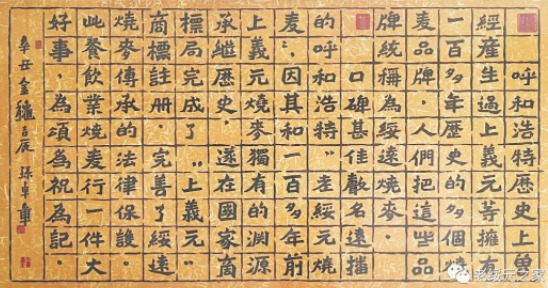 呼和浩特歷史上曾
經產生過上義元等擁有
一百多年歷史的多個燒
麦品牌，人們把這些品
牌統稱為綏遠燒麥。
口碑甚佳聲名遠播
的呼和浩特“老綏元燒
麦”，因其和一百多年前
上義元燒麥獨有的淵源
承继歷史，遂在國家商
標局完成了“上義元”
商標註册，完善了綏遠
燒麥傳承的法律保護。
此餐飲業燒麦行一件大
好事，為頌為祝為記。
辛丑金穗吉辰 孫卓章
老绥元之家